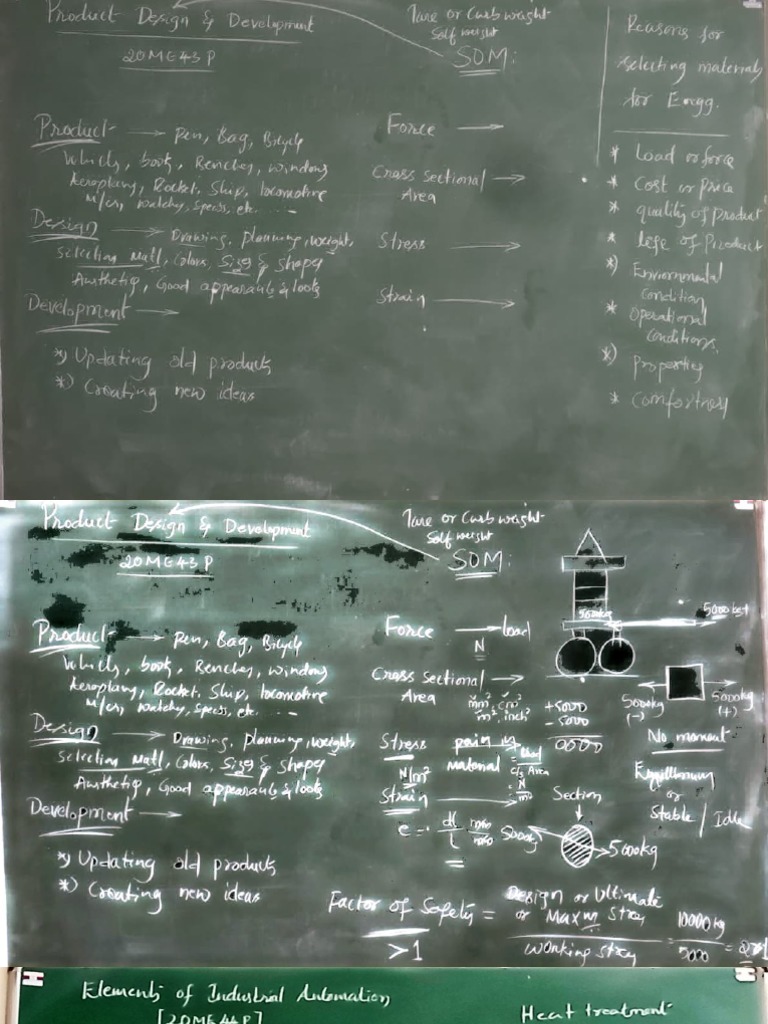 Product Design & Development
20ME43P
Tare or Curb weight
Self weight
SOM:
Reasons for
selecting materials
for Engg.
Product → Pen, Bag, Bicycle
Vehicles, book, Benches, windows
Aeroplane, Rocket, Ship, locomotive
M/cs, watches, specs, etc. ...
Design → Drawing, planning, weight,
selection matl, Colors, Size & shape
Aesthetic, Good appearance & looks
Development →
*) Updating old products
*) Creating new ideas
Force →
Cross sectional →
Area
Stress →
Strain →
* Load or force
* Cost or price
* quality of product
* life of product
*) Environmental
condition
* Operational
conditions
*) Properties
* Comfortness
Product Design & Development
20ME43P
Tare or Curb weight
Self weight
SOM:
Product → Pen, Bag, Bicycle
Vehicles, book, Benches, windows
Aeroplane, Rocket, Ship, locomotive
M/cs, watches, specs, etc. ...
Design → Drawing, planning, weight,
selection matl, Colors, Size & shape
Aesthetic, Good appearance & looks
Development →
*) Updating old products
*) Creating new ideas
Force → load
N
Cross sectional →
Area
mm² cm²
m², inch²
Stress pain in
material = Load
c/s Area
N/m² = N
m²
Strain →
e = dl mm
l mm
5000kg
5000kg
5000kg 5000kg
(-) (+)
+5000
- 5000
0000
No moment
Equilibrium
or
Stable / Idle
Section
5000kg
5000kg
Factor of Safety = Design or Ultimate
or Maxm Stress = 10000kg
Working stress 5000 = 2>1
>1
Elements of Industrial Automation
[20ME44P]
Heat treatment